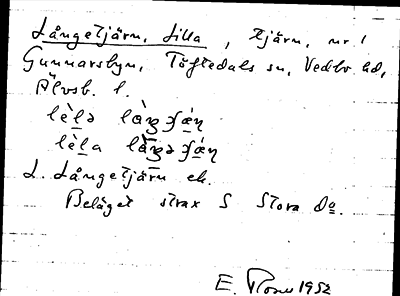 Långetjärn, Lilla, tjärn, nr 1
Gunnarsbyn, Töftedals sn, Vedbo hd,
Älvsb. l.
lèḷə
lèḷa
L. Långetjärn ek.
Beläget strax S Stora Do.
E. 1952